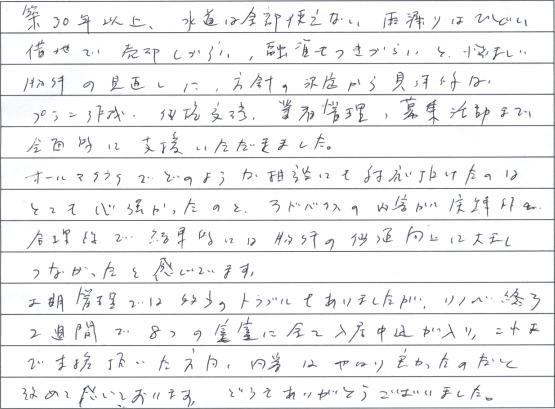 築30年以上、水道は全部使えない 雨漏りはひどい
借地で売却しづらい、融資もつきづらいと、悩ましい
物件の見直しに、方針の決定から見積作成
プラン作成・価格交渉、業者管理、募集活動まで
全面的に支援いただきました。
オールマイティでどのような相談にも対応頂けたのは
とても心強かったのと、アドバイスの内容が
合理的で結果的には物件の価値向上に大きく
つながったと感じています。
工期管理では 多少のトラブルもありましたが、リノベ終了
2週間で8つの空室に全て入居申込が入り、ここまで
で支援頂いた方向、内容はやはり良かったのだと
改めて感じております。どうもありがとうございました。